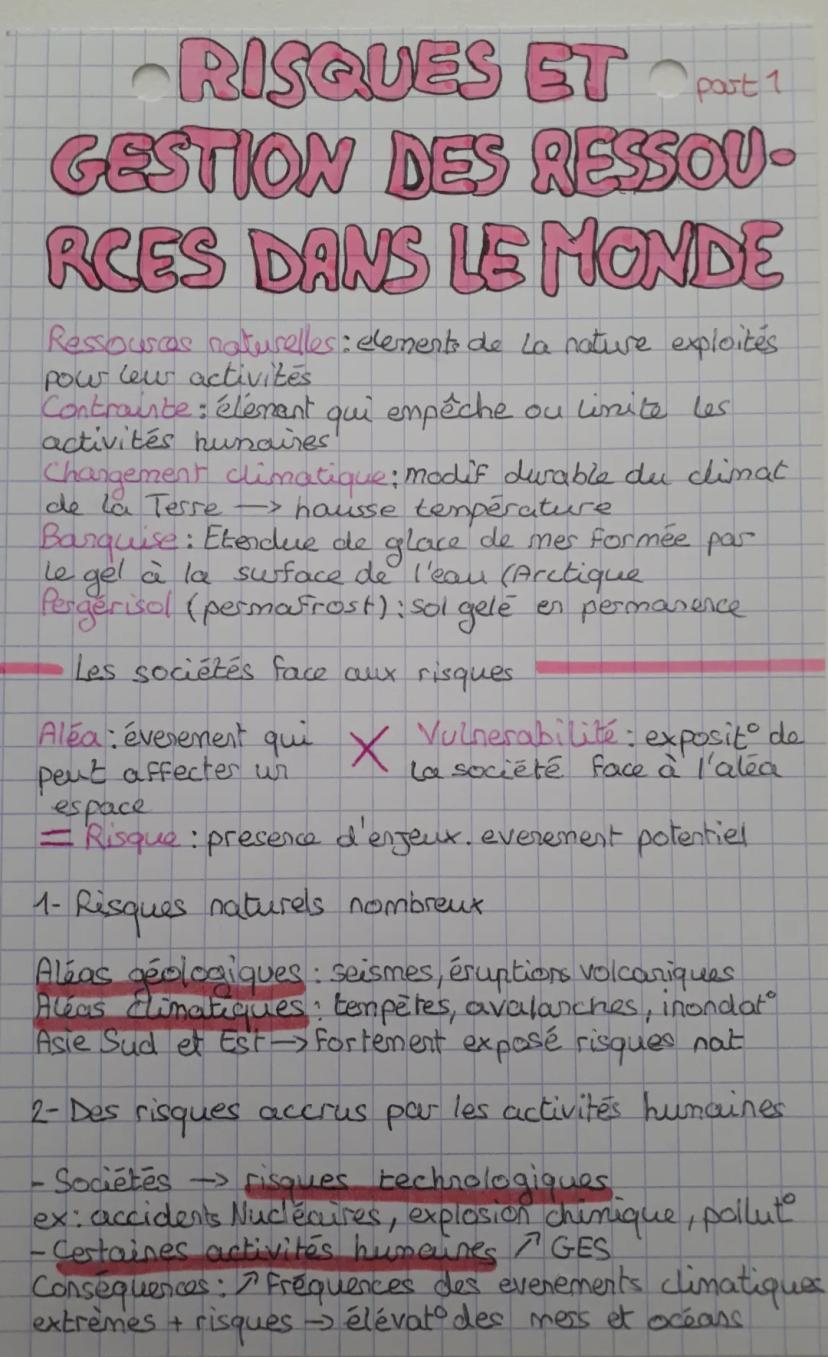 RISQUES ET part 1
GESTION DES RESSOU-
RCES DANS LE MONDE
Ressources naturelles : elements de la nature exploités
pour leur activités
Contrainte : élémant qui empêche ou limite les
activités humaires
Changement climatique : modif durable du climat
de la Terre → hausse température
Banquise : Etendue de glace de mer formée par
le gel à la surface de l'eau (Arctique
Pergérisol (permafrost) : sol gelé en permanence
Les sociétés face aux risques
Aléa : évenement qui × Vulnerabilité : exposit° de
peut affecter un la société face à l'aléa
espace
= Risque : presence d'enjeux. evenement potentiel
1- Risques naturels nombreux
Aléas géologiques : seismes, éruptions volcaniques
Aléas climatiques : tempêtes, avalanches, inondat°
Asie Sud et Est → fortement exposé risques nat
2- Des risques accrus par les activités humaines
- Sociétés → risques technologiques
ex : accidents Nucléaires, explosion chimique, pollut°
- Certaines activités humaines ↗ GES
Conséquences : ↗ Fréquences des evenements climatiques
extrêmes + risques → élévat° des mers et océans